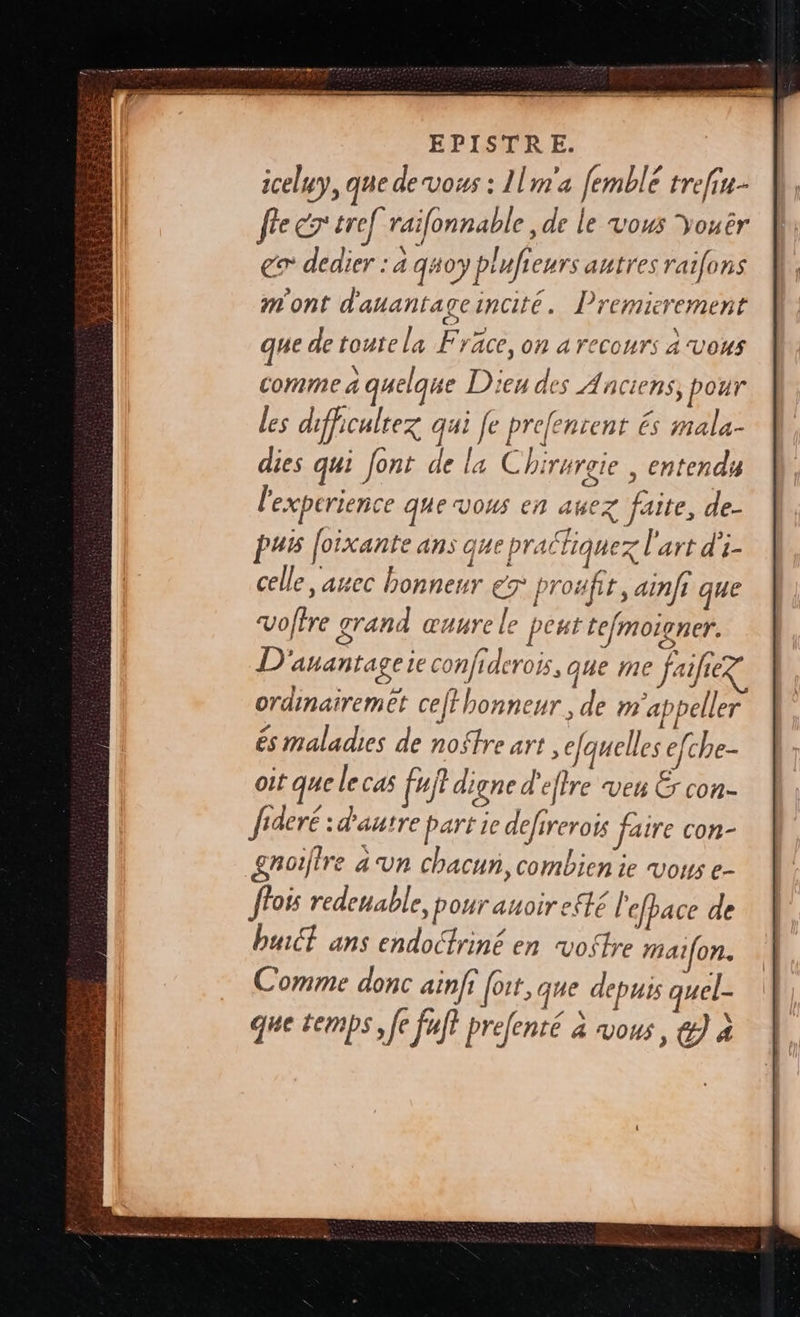 EPISTRE.
iceluy, que de vous : Il m'a ſemblé treſiu-
ſte & treſ raiſonnable, de le vous voüer
& dedier : à quoy pluſieurs autres raiſons
m'ont d'auantage incité. Premierement
que de toute la Frãce, on a recours à vous
comme à quelque Dieu des Anciens, pour
les difficultez qui ſe preſentent és mala-
dies qui ſont de la Chirurgie, entendu
l'experience que vous en auez faite, de-
puis ſoixante ans que practiquez l'art d'i-
celle, auec honneur & proufit, ainſi que
voſtre grand œuure le peut teſmoigner.
D'auantage ie conſiderois, que me faiſiez
ordinairemẽt ceſt honneur, de m'appeller
és maladies de noſtre art, eſquelles eſche-
oit que le cas fuſt digne d'eſtre veu & con-
ſideré : d'autre part ie deſirerois faire con-
gnoiſtre à vn chacun, combien ie vous e-
ſtois redeuable, pour auoir eſté l'eſpace de
huict ans endoctriné en voſtre maiſon.
Comme donc ainſi ſoit, que depuis quel-
que temps, ſe fuſt preſenté à vous, & à